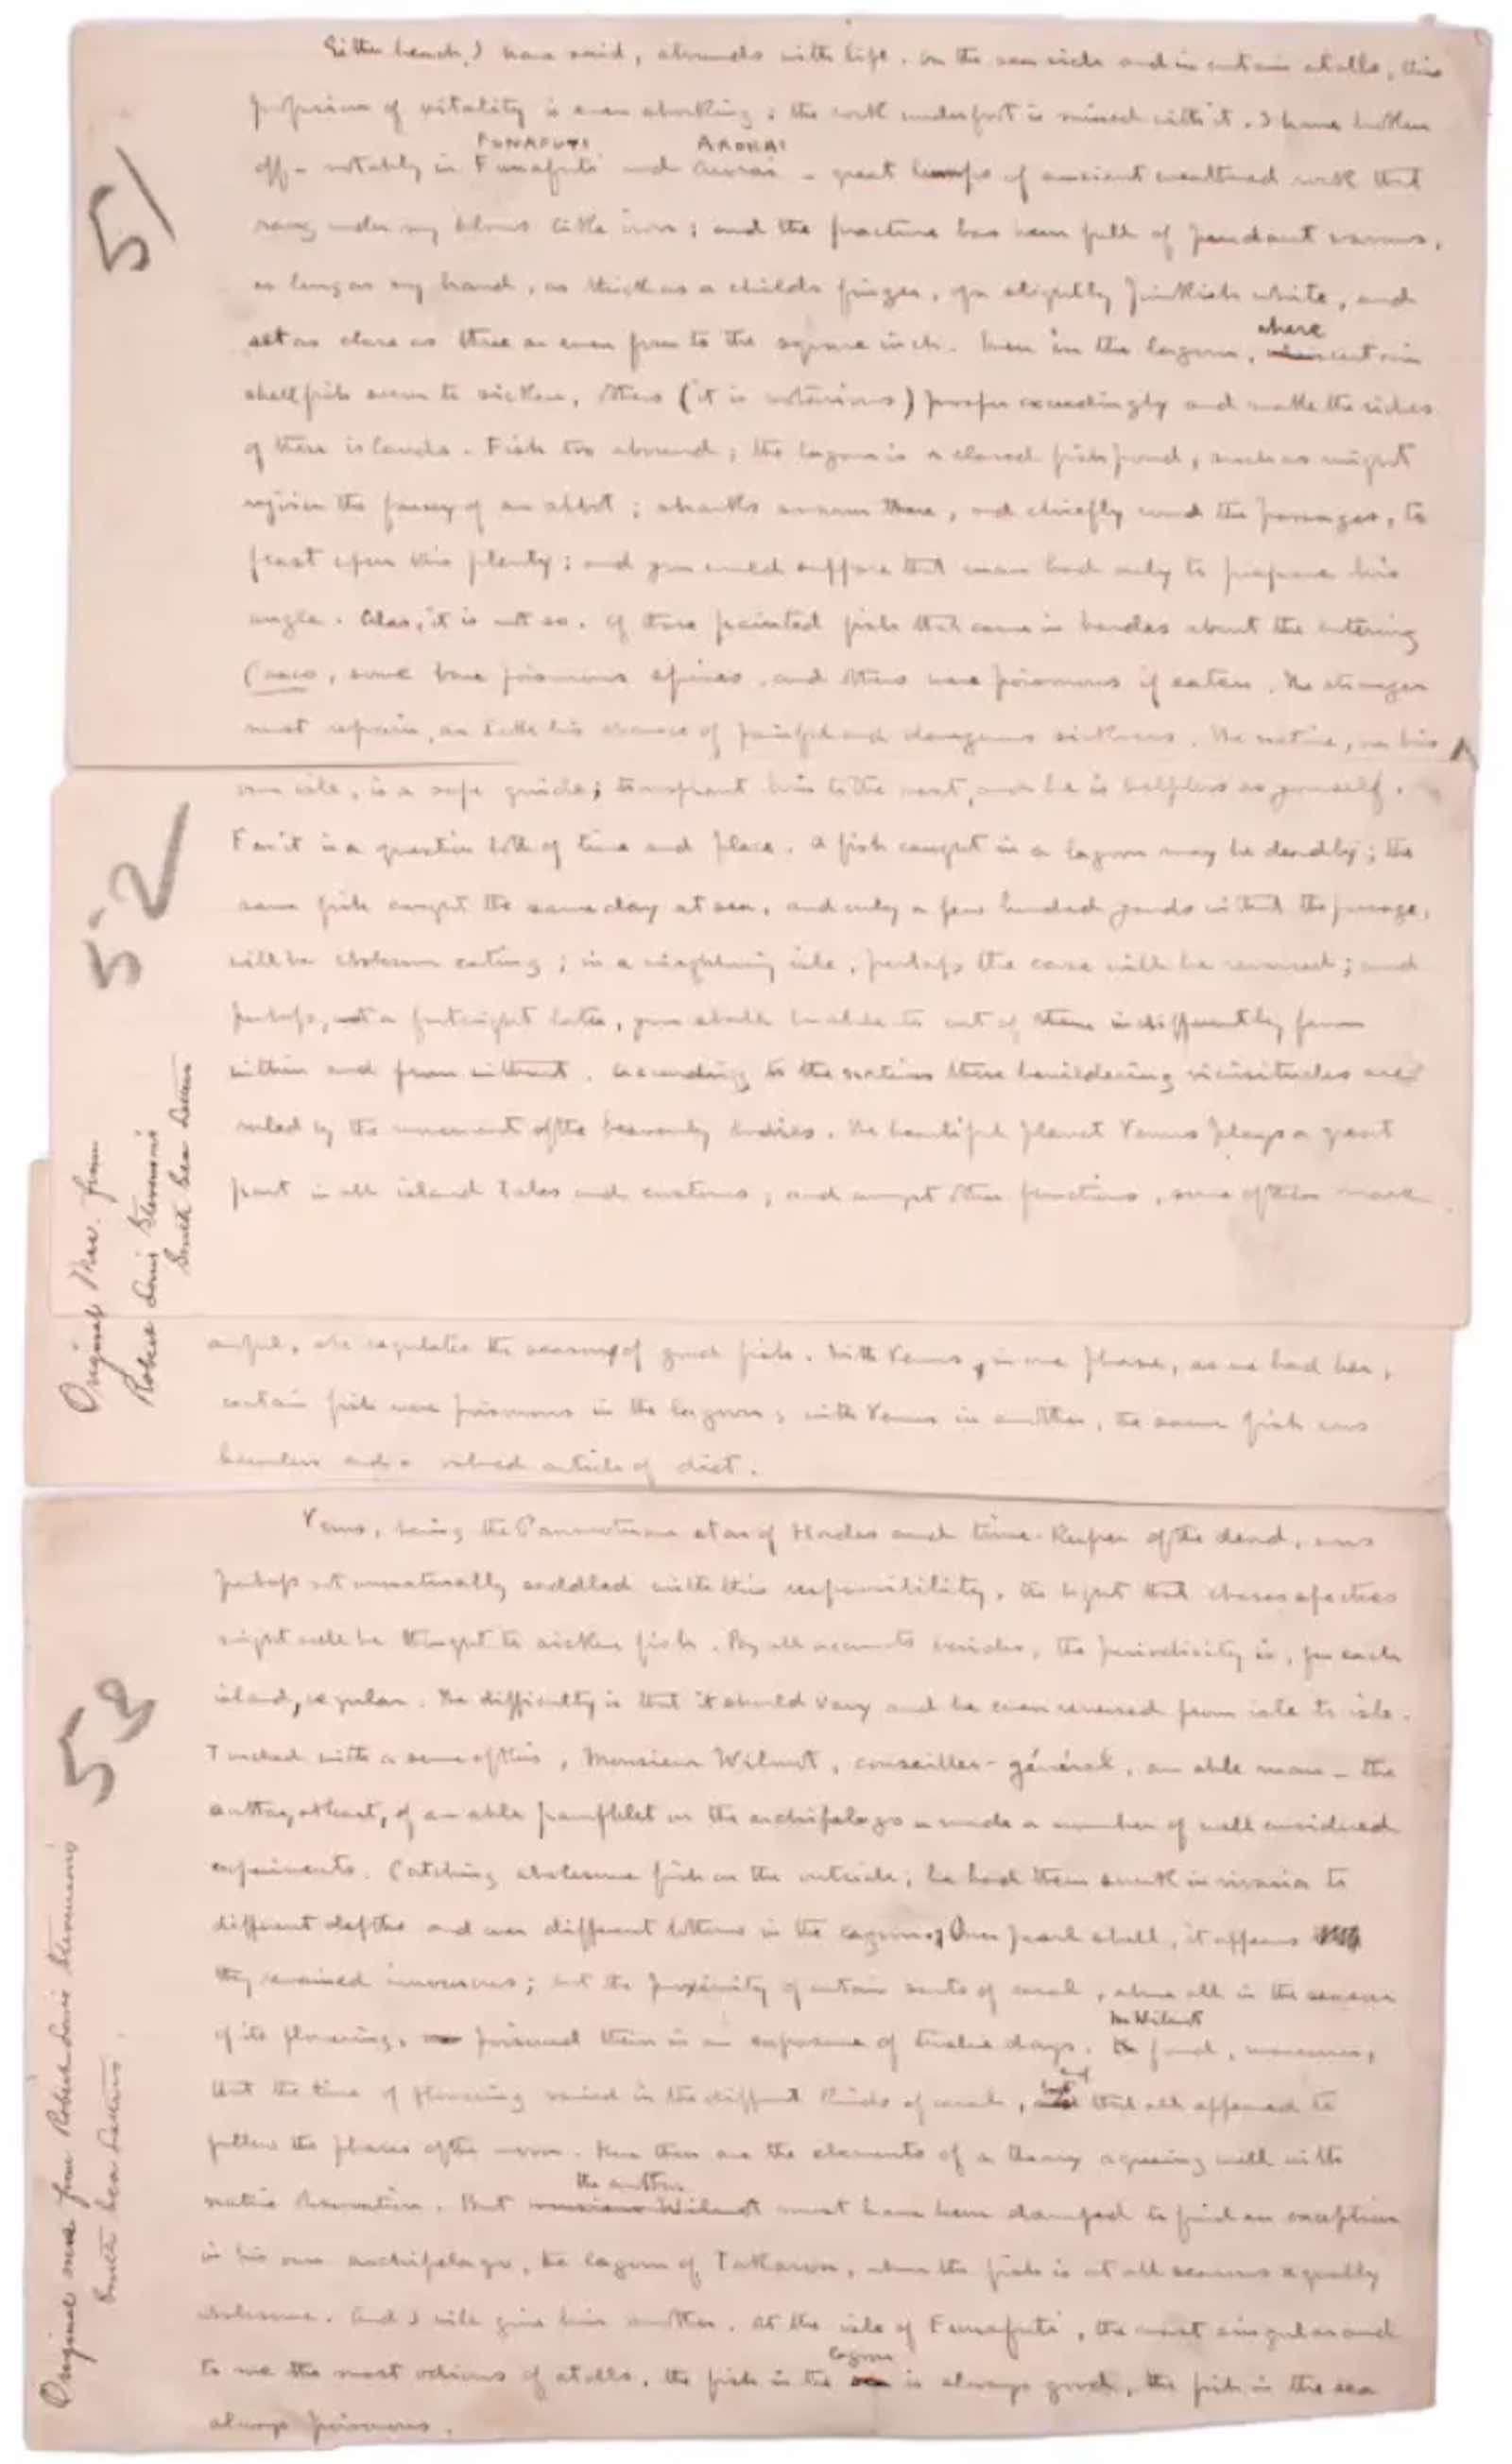 51
Either beach, I have said, abounds with life. On the sea side and in certain atolls, this
profusion of vitality is even shocking; the rock underfoot is mined with it. I have broken
FUNAFUTI ARORAI
off - notably in Funafuti and Arorai - great lumps of ancient weathered rock that
rang under my blows like iron; and the fracture has been full of pendant worms,
as long as my hand, as thick as a childs finger, of a slightly pinkish white, and
set as close as three or even four to the square inch. Even in the lagoon, where certain
shell fish seem to sicken, others (it is notorious) prosper exceedingly and make the riches
of these islands. Fish too abound; the lagoon is a closed fish pond, such as might
rejoice the fancy of an abbot; sharks swarm there, and chiefly round the passages, to
feast upon this plenty; and you would suppose that man had only to prepare his
angle. Alas, it is not so. Of these painted fish that came in hordes about the entering
Casco, some bore poisonous spines, and others were poisonous if eaten. The stranger
must refrain, or take his chance of painful and dangerous sickness. The native, on his
52
own isle, is a safe guide; transplant him to the next, and he is helpless as yourself.
For it is a question both of time and place. A fish caught in a lagoon may be deadly; the
same fish caught the same day at sea, and only a few hundred yards without the passage,
will be wholesome eating; in a neighbouring isle, perhaps the case will be reversed; and
perhaps, not a fortnight later, you shall be able to eat of them indifferently from
within and from without. According to the natives these bewildering vicissitudes are
ruled by the movement of the heavenly bodies. The beautiful planet Venus plays a great
part in all island tales and customs; and amongst other functions, some of them more
Original Mss. from
Robert Louis Stevenson's
South Sea Letters
awful, she regulates the season of good fish. With Venus, in one phase, as we had her,
certain fish were poisonous in the lagoon; with Venus in another, the same fish was
harmless and a valued article of diet.
53
Venus, being the Paumotuan star of Hades and time-keeper of the dead, was
perhaps not unnaturally saddled with this responsibility, the light that chases spectres
might well be thought to sicken fish. By all accounts besides, the periodicity is, for each
island, regular. The difficulty is that it should vary and be even reversed from isle to isle.
Touched with a sense of this, Monsieur Wilmot, conseiller-général, an able man - the
author, at least, of an able pamphlet on the archipelago - made a number of well considered
experiments. Catching wholesome fish on the outside, he had them sunk in vivaria to
different depths and over different bottoms in the lagoon. Over pearl shell, it appears
they remained innocuous; but the proximity of certain sorts of coral, above all in the season
of its flowering, poisoned them in an exposure of twelve days. M. Wilmot found, moreover,
that the time of flowering varied in the different kinds of coral, but that all appeared to
follow the phases of the moon. Here then are the elements of a theory agreeing well with
the author
native observation. But monsieur Wilmot must have been damped to find an exception
in his own archipelago, the lagoon of Takaroa, where the fish is at all seasons equally
wholesome. And I will give him another. At the isle of Funafuti, the most singular and
lagoon
to me the most odious of atolls, the fish in the sea is always good, the fish in the sea
always poisonous.
Original mss. from Robert Louis Stevenson's
South Sea Letters